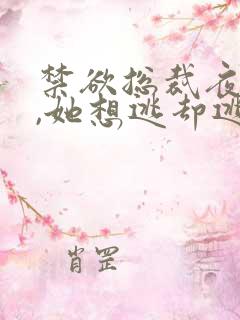 禁欲总裁夜
,她想逃却逃
肖罡